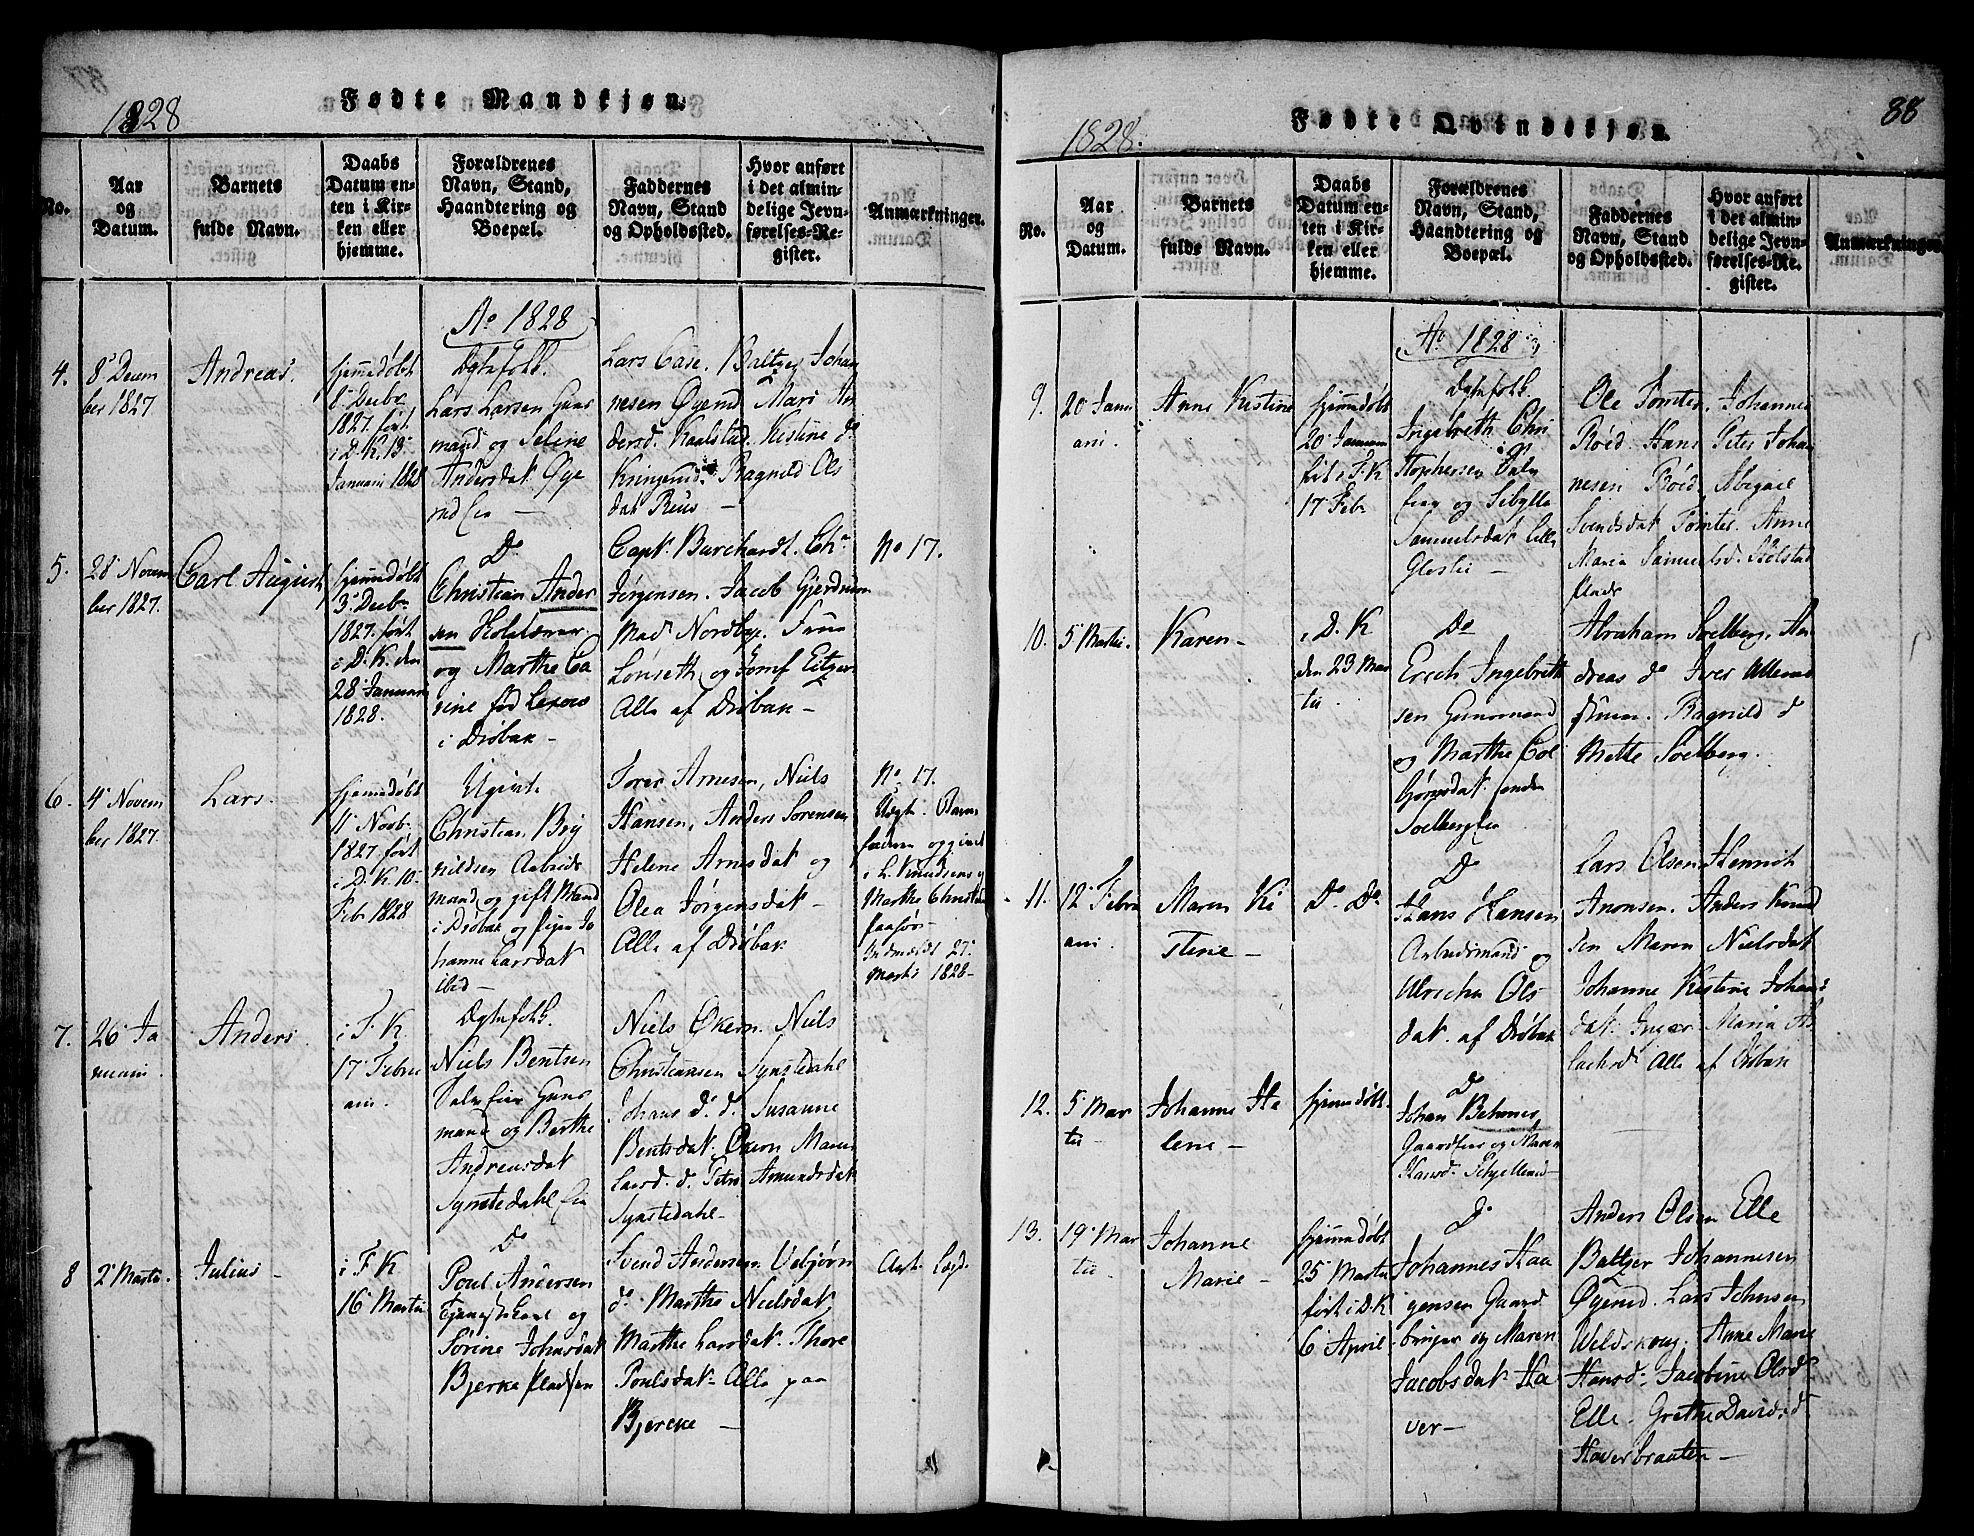 1828
Fødte Mandkjøn.
No.
Aar
og
Datum.
Barnets
fulde Navn.
Daabs
Datum en-
ten i Kir-
ken eller
hjemme.
Forældrenes
Navn, Stand,
Haandtering og
Boepæl.
Faddernes
Navn, Stand
og Opholdssted.
Hvor anført
i det almin-
delige Jevn-
førelses-Re-
gister.
Anmærkninger.
Ao 1828
4.
8 Decem
ber 1827
Andreas.
hjemmedøbt
8 Decbr
1827 ført
i D. K. 13
Januari 1828
Ægtefolk.
Lars Larsen Gaar
mand og Seline
Andersdat Øye
rud
Lars Case. Baltzer Johan
nesen Øyerud Mari An
dersd. Kaalstad. Kistine do
Kringerud Ragnild Ols
dat Reius –
5.
28 Novem
ber 1827.
Carl August
hjemmedøbt
3 Decbr
1827. ført
i D. K. den
28 Januari
1828.
Do
Christian Ander
sen Holstener
og Marthe Ca
rine fød
i Drøbak –
Capt. Burchardt. Chr.
Jørgensen. Jacob Gjerdrum
Mad Nordbye. Frue
Lonseth og Jomf Eitzen
Alle af Drøbak –
No 17.
6.
4 Novem
ber 1827.
Lars.
hjemmedøbt
11 Novb.
1827 ført
i D. K 10
Febr 1828
Ugivt.
Christian Bry
nildsen Arbeids
mand og gift Mand
i Drøbak og Pigen Jo
hanne Larsdat
ibid –
Torer Arnesen, Niels
Hansen, Anders Sorensen
Helene Arnesdat og
Olea Jørgensdat –
Alle af Drøbak
No 17.
Uægt. Barn
faderen opgivet
i L. Knudsens og
Marthe Christens
Paasyn
Indmeldt 27
Martii 1828 –
7.
26 Ja
nuarii.
Anders
i F. K.
17 Febru
arii.
Ægtefolk.
Niels Bentsen
Gaard
mand og Berthe
Andreasdat
Synstedahl Eier
Niels Økern. Niels
Christiansen Synstedahl
Johans d. d. Susanne
Bentsdat. Økern Maren
Larsd. d. Petri Amundsdat
Synstedahl –
8
2 Martii.
Julius –
i F K
16 Martii
Do
Poul Andersen
Tjenestekarl og
Sørine Johnsdat
Bjerke Pladsen
Svend Andersen Uebjørn
do. Marthe Nielsdat
Marthe Larsdat. Thore
Poulsdat. Alle paa
Bjercke –
88
1828.
Fødte Qvindekjøn.
No.
Aar
og
Datum.
Barnets
fulde Navn.
Daabs
Datum en-
ten i Kir-
ken eller
hjemme.
Forældrenes
Navn, Stand,
Haandtering og
Boepæl.
Faddernes
Navn, Stand
og Opholdssted.
Hvor anført
i det almin-
delige Jevn-
førelses-Re-
gister.
Anmærkninger.
Ao 1828
9.
20 Janu
arii.
Anne Kistine
hjemmedøbt
20 Januari
ført i F. K
17 Febr
Ægtefolk
Ingebreth Chri
stophersen
og Sibylle
Samuelsdat
Ole Tomter. Johannes
Røed. Hans Peter Johan
nesen Røed. Abigael
Svendsdat Tomter. Anne
Maria Samuelsd. Solstad
plads
10.
5 Martii.
Karen –
i D. K
den 23 Mar
tii.
Do
Erich Ingebreth
sen Gaardmand
og Marthe Col
bjørnsdat søndre
Soelberg
Abraham Soelberg. An
dreas do Iver Ullerud
Ragnild d
Mette Soelberg.
11.
12 Febru
arii
Maren Ki
stine –
Do Do
Do
Hans Hansen
Arbeidsmand og
Ulricha Ols
dat. af Drøbak
Lars Olsen Henrich
Aronsen. Anders Knud
sen Maren Nielsdat
Johanne Kistine Johans
dat. Inger Maria As
lachsd. Alle af Drøbak
12.
5 Mar
tii –
Johanne He
lene –
hjemmedøbt.
Do
Johan Behmer
Gaardeier og Maren
Hansd. Skjellerud
13.
19 Mar
tii.
Johanne
Marie –
hjemmedøbt
25 Martii
ført i D. K
6 April
Do
Johannes Haa
gensen Gaard
bruger og Maren
Jacobsdat Ha
ver –
Anders Olsen Elle
Baltzer Johannesen
Øyerud. Lars Johnsen
Weldskoug. Anne Marie
Hansd. Jacobine Olsd.
Elle. Grethe Davidsd.
Haverbraaten –